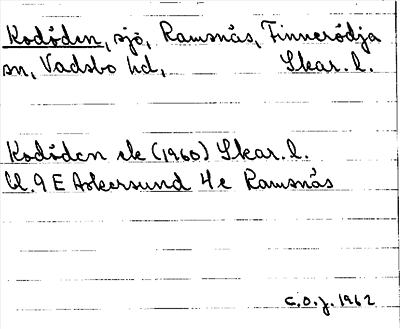 Kodöden, sjö, Ramsnäs, Finnerödja
sn, Vadsbo hd, Skar. l.
Kodöden ek (1960) Skar. l.
bl. 9 E Askersund 4 e Ramsnäs
C.O.J. 1962